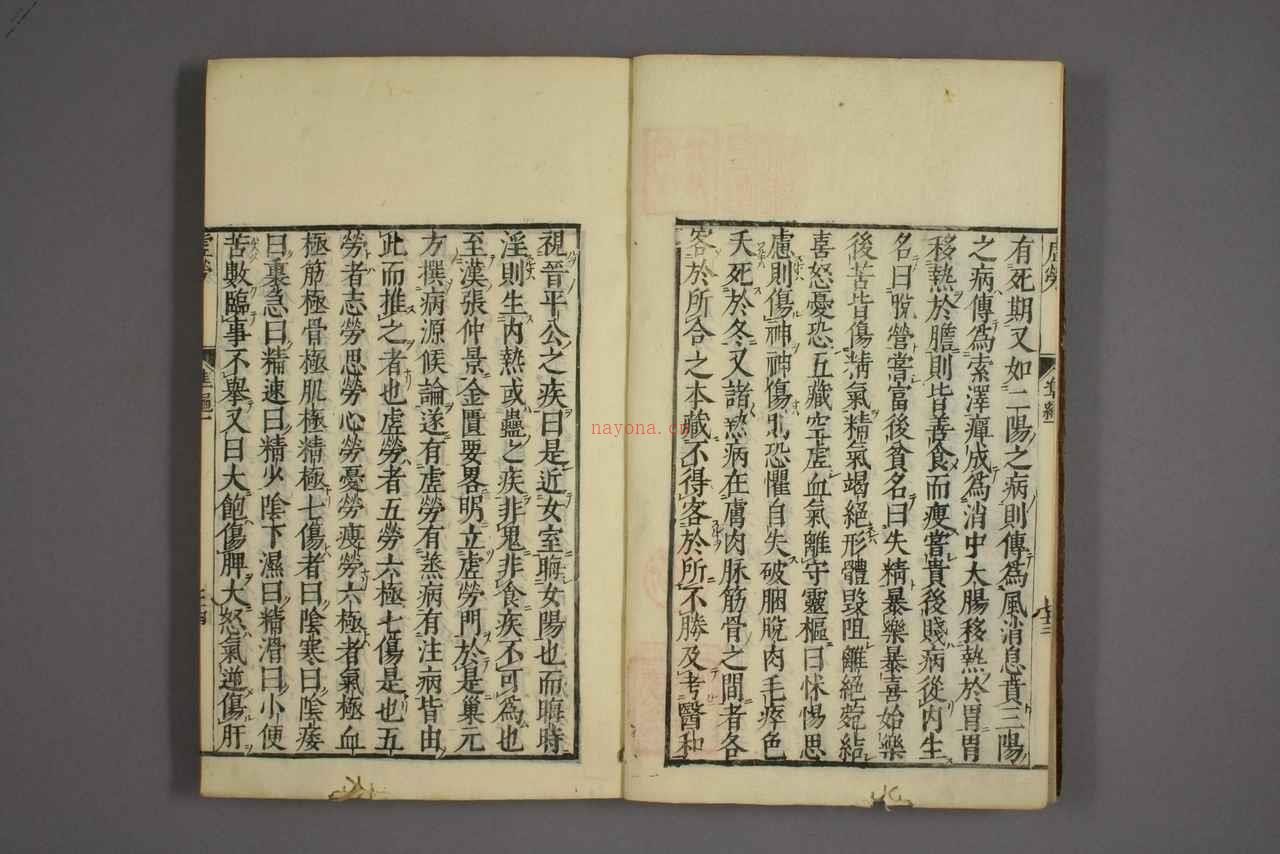 虛勞 準繩
有死期又如二陽之病則傳爲風消息賁三陽
之病傳爲索澤癉成爲消中大腸移熱於胃胃
移熱於膽則皆善食而瘦嘗貴後賤病從内生
名曰脫營嘗富後貧名曰失精暴樂暴喜始樂
後苦皆傷精氣精氣竭絕形體毀阻離絕菀結
喜怒憂恐五藏空虛血氣離守靈樞曰怵惕思
慮則傷神神傷則恐懼自失破䐃脫肉毛瘁色
夭死於冬又諸熱病在膚肉脉筋骨之間者各
客於所合之本藏不得客於所不勝及考醫和
視晉平公之疾曰是近女室晦女陽也而晦時
淫則生内熱或蠱之疾非鬼非食疾不可爲也
至漢張仲景金匱要畧明立虛勞門於是巢元
方撰病源候論遂有虛勞有蒸病有注病皆由
此而推之者也虛勞者五勞六極七傷是也五
勞者志勞思勞心勞憂勞瘦勞六極者氣極血
極筋極骨極肌極精極七傷者曰陰寒曰陰痿
曰裏急曰精速曰精少陰下濕曰精滑曰小便
苦數臨事不舉又曰大飽傷脾大怒氣逆傷肝
虛勞 準繩
nayona.cn